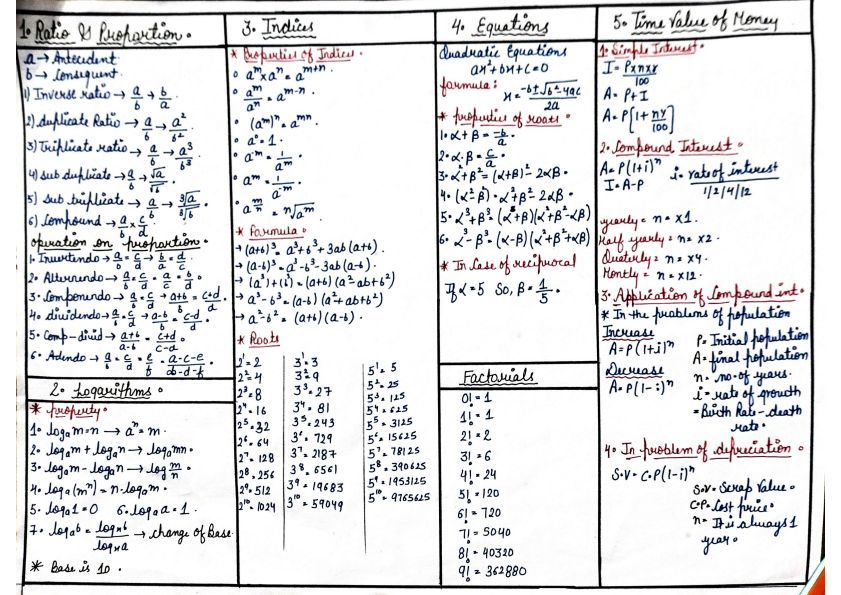 1. Ratio & Proportion.
a → Antecedent
b → Consequent.
1) Inverse ratio → a/b → b/a
2) duplicate Ratio → a/b → a²/b²
3) Triplicate ratio → a/b → a³/b³
4) sub duplicate → a/b → √a/√b
5) sub triplicate → a/b → ³√a/³√b
6) Compound → a/b × c/d
operation on proportion.
1. Invertendo → a/b = c/d → b/a = d/c
2. Alternendo → a/b = c/d = a/c = b/d
3. Componendo → a/b = c/d → a+b/b = c+d/d
4. dividendo → a/b = c/d → a-b/b = c-d/d
5. Comp-divid → a+b/a-b = c+d/c-d
6. Adendo → a/b = c/d = e/f = a-c-e/b-d-f
2. Logarithms.
* property.
1. logₐm = n → aⁿ = m.
2. logₐm + logₐn → logₐmn.
3. logₐm - logₐn → log m/n.
4. logₐ(mⁿ) = n·logₐm.
5. logₐ1 = 0 6. logₐa = 1.
7. logₐb = logₓb/logₓa → change of Base
* Base is 10.
3. Indices
* Properties of Indices.
° aᵐ × aⁿ = aᵐ⁺ⁿ.
° aᵐ/aⁿ = aᵐ⁻ⁿ.
° (aᵐ)ⁿ = aᵐⁿ.
° a° = 1.
° aᵐ = 1/a⁻ᵐ.
° aᵐ = 1/a⁻ᵐ.
° a^m/n = n√aᵐ
* Formula.
→ (a+b)³ = a³+b³+3ab(a+b).
→ (a-b)³ = a³-b³-3ab(a-b).
→ (a³)+(b³) = (a+b)(a²-ab+b²)
→ a³-b³ = (a-b)(a²+ab+b²)
→ a²-b² = (a+b)(a-b).
* Roots
2¹ = 2
2² = 4
2³ = 8
2⁴ = 16
2⁵ = 32
2⁶ = 64
2⁷ = 128
2⁸ = 256
2⁹ = 512
2¹⁰ = 1024
3¹ = 3
3² = 9
3³ = 27
3⁴ = 81
3⁵ = 243
3⁶ = 729
3⁷ = 2187
3⁸ = 6561
3⁹ = 19683
3¹⁰ = 59049
5¹ = 5
5² = 25
5³ = 125
5⁴ = 625
5⁵ = 3125
5⁶ = 15625
5⁷ = 78125
5⁸ = 390625
5⁹ = 1953125
5¹⁰ = 9765625
4. Equations
Quadratic Equations
ax² + bx + c = 0
formula:
x = -b ± √b²-4ac/2a
* properties of roots.
1. α + β = -b/a.
2. α·β = c/a.
3. α²+β² = (α+β)² - 2αβ
4. (α²-β²) · α²+β² - 2αβ.
5. α³+β³ = (α+β)(α²+β²-αβ)
6. α³-β³ = (α-β)(α²+β²+αβ)
* In Case of reciprocal
If α = 5 So, β = 1/5.
Factorials
0! = 1
1! = 1
2! = 2
3! = 6
4! = 24
5! = 120
6! = 720
7! = 5040
8! = 40320
9! = 362880
5. Time Value of Money
1. Simple Interest.
I = P×n×r/100
A = P+I
A = P[1 + nr/100]
2. Compound Interest.
A = P(1+i)ⁿ
I = A-P
i = rate of interest
1/2/4/12
yearly = n = ×1.
Half yearly = n = ×2.
Quaterly = n = ×4.
Montly = n = ×12.
3. Application of Compound int.
* In the problems of population
Increase
A = P(1+i)ⁿ
Decrease
A = P(1-i)ⁿ
P = Initial population
A = final population
n = no. of years.
i = rate of growth
= Birth Rate - death
rate.
4. In problem of depreciation.
S.V = C.P(1-i)ⁿ
S.V = Scrap Value.
C.P = Cost price.
n = It is always 1
year.